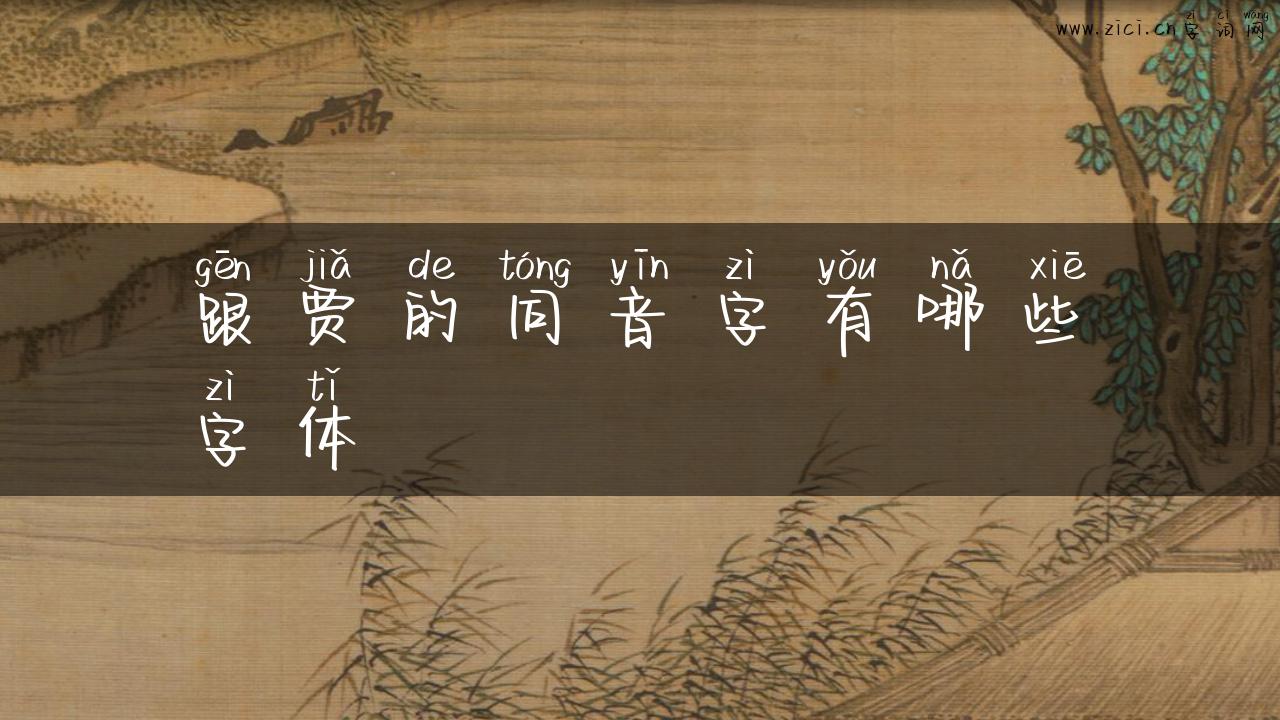 zì cí wǎng
www.zici.cn字词网
gēn jiǎ de tóng yīn zì yǒu nǎ xiē
跟贾的同音字有哪些
zì tǐ
字体